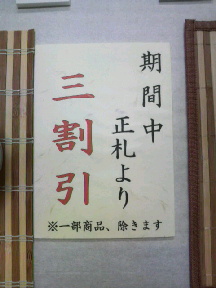 期間中
正札より
三割引
※一部商品、除きます